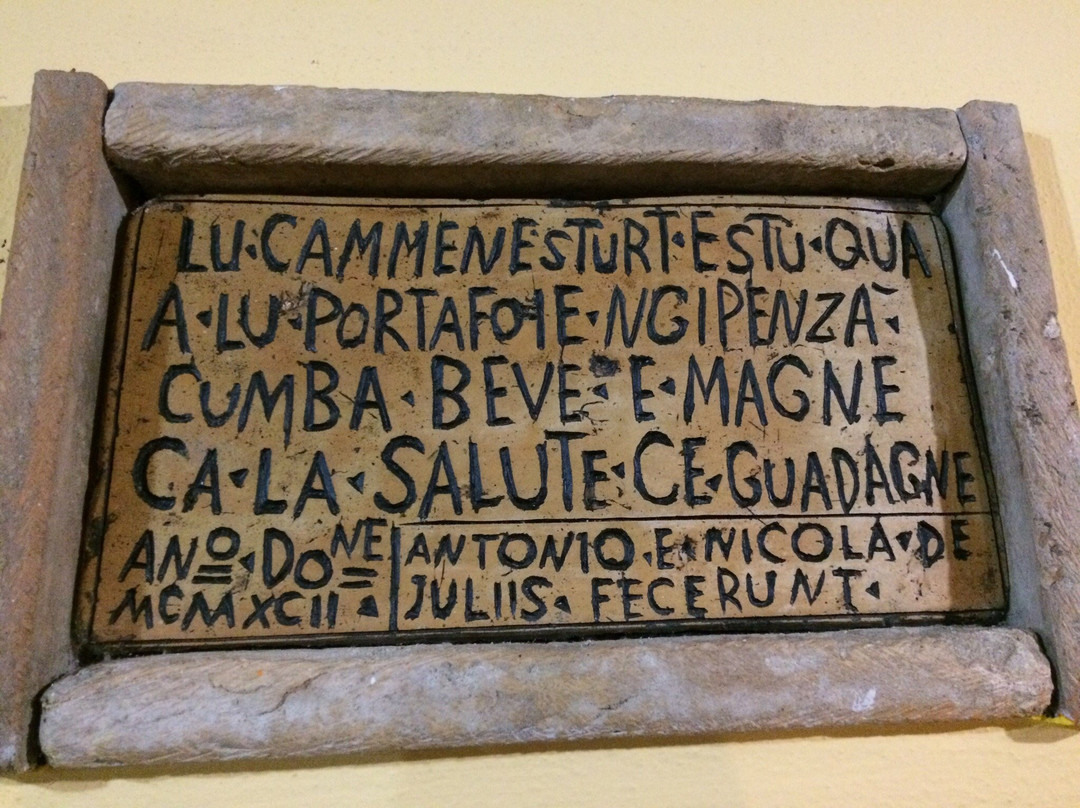 LU·CAMMENESTURT·ESTU·QUA
A·LU·PORTAFOIE·NGIPENZÀ·
CUMBA·BEVE·E·MAGNE
CA·LA·SALUTE·CE·GUADAGNE
ANO·DONE
MCMXCII·
ANTONIO·E·NICOLA·DE
JULIIS·FECERUNT·